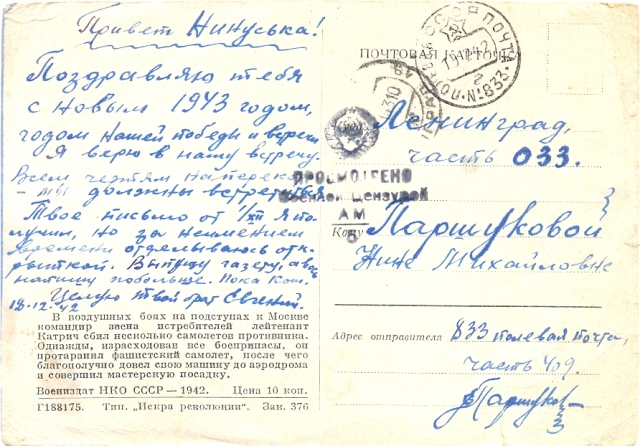 Привет Нинуська!
Поздравляю тебя
с новым 1943 годом,
годом нашей победы и встречи
Я верю в нашу встречу.
Всем чертям наперекор
мы должны встретиться
Твое письмо от 1/XII я по-
лучил, но за неимением
времени отделываюсь отк-
рыткой. Выпущу газету,
напишу побольше. Пока Кон.
Целую твой брат Евгений.
18-12-42
В воздушных боях на подступах к Москве
командир звена истребителей лейтенант
Катрич сбил несколько самолетов противника.
Однажды, израсходовав все боеприпасы, он
протаранил фашистский самолет, после чего
благополучно довел свою машину до аэродрома
и совершил мастерскую посадку.
Воениздат НКО СССР—1942. Цена 10 коп.
Г188175. Тип. „Искра революции". Зак. 376
ПОЧТОВАЯ КАРТОЧКА
СССР ПОЧТА
№ 833
Ленинград,
часть 033.
ПРОСМОТРЕНО
Военной Цензурой
АМ
Кому Паршуковой
Нине Михайловне
Адрес отправителя 833 полевая почта,
часть 409.
Паршуков